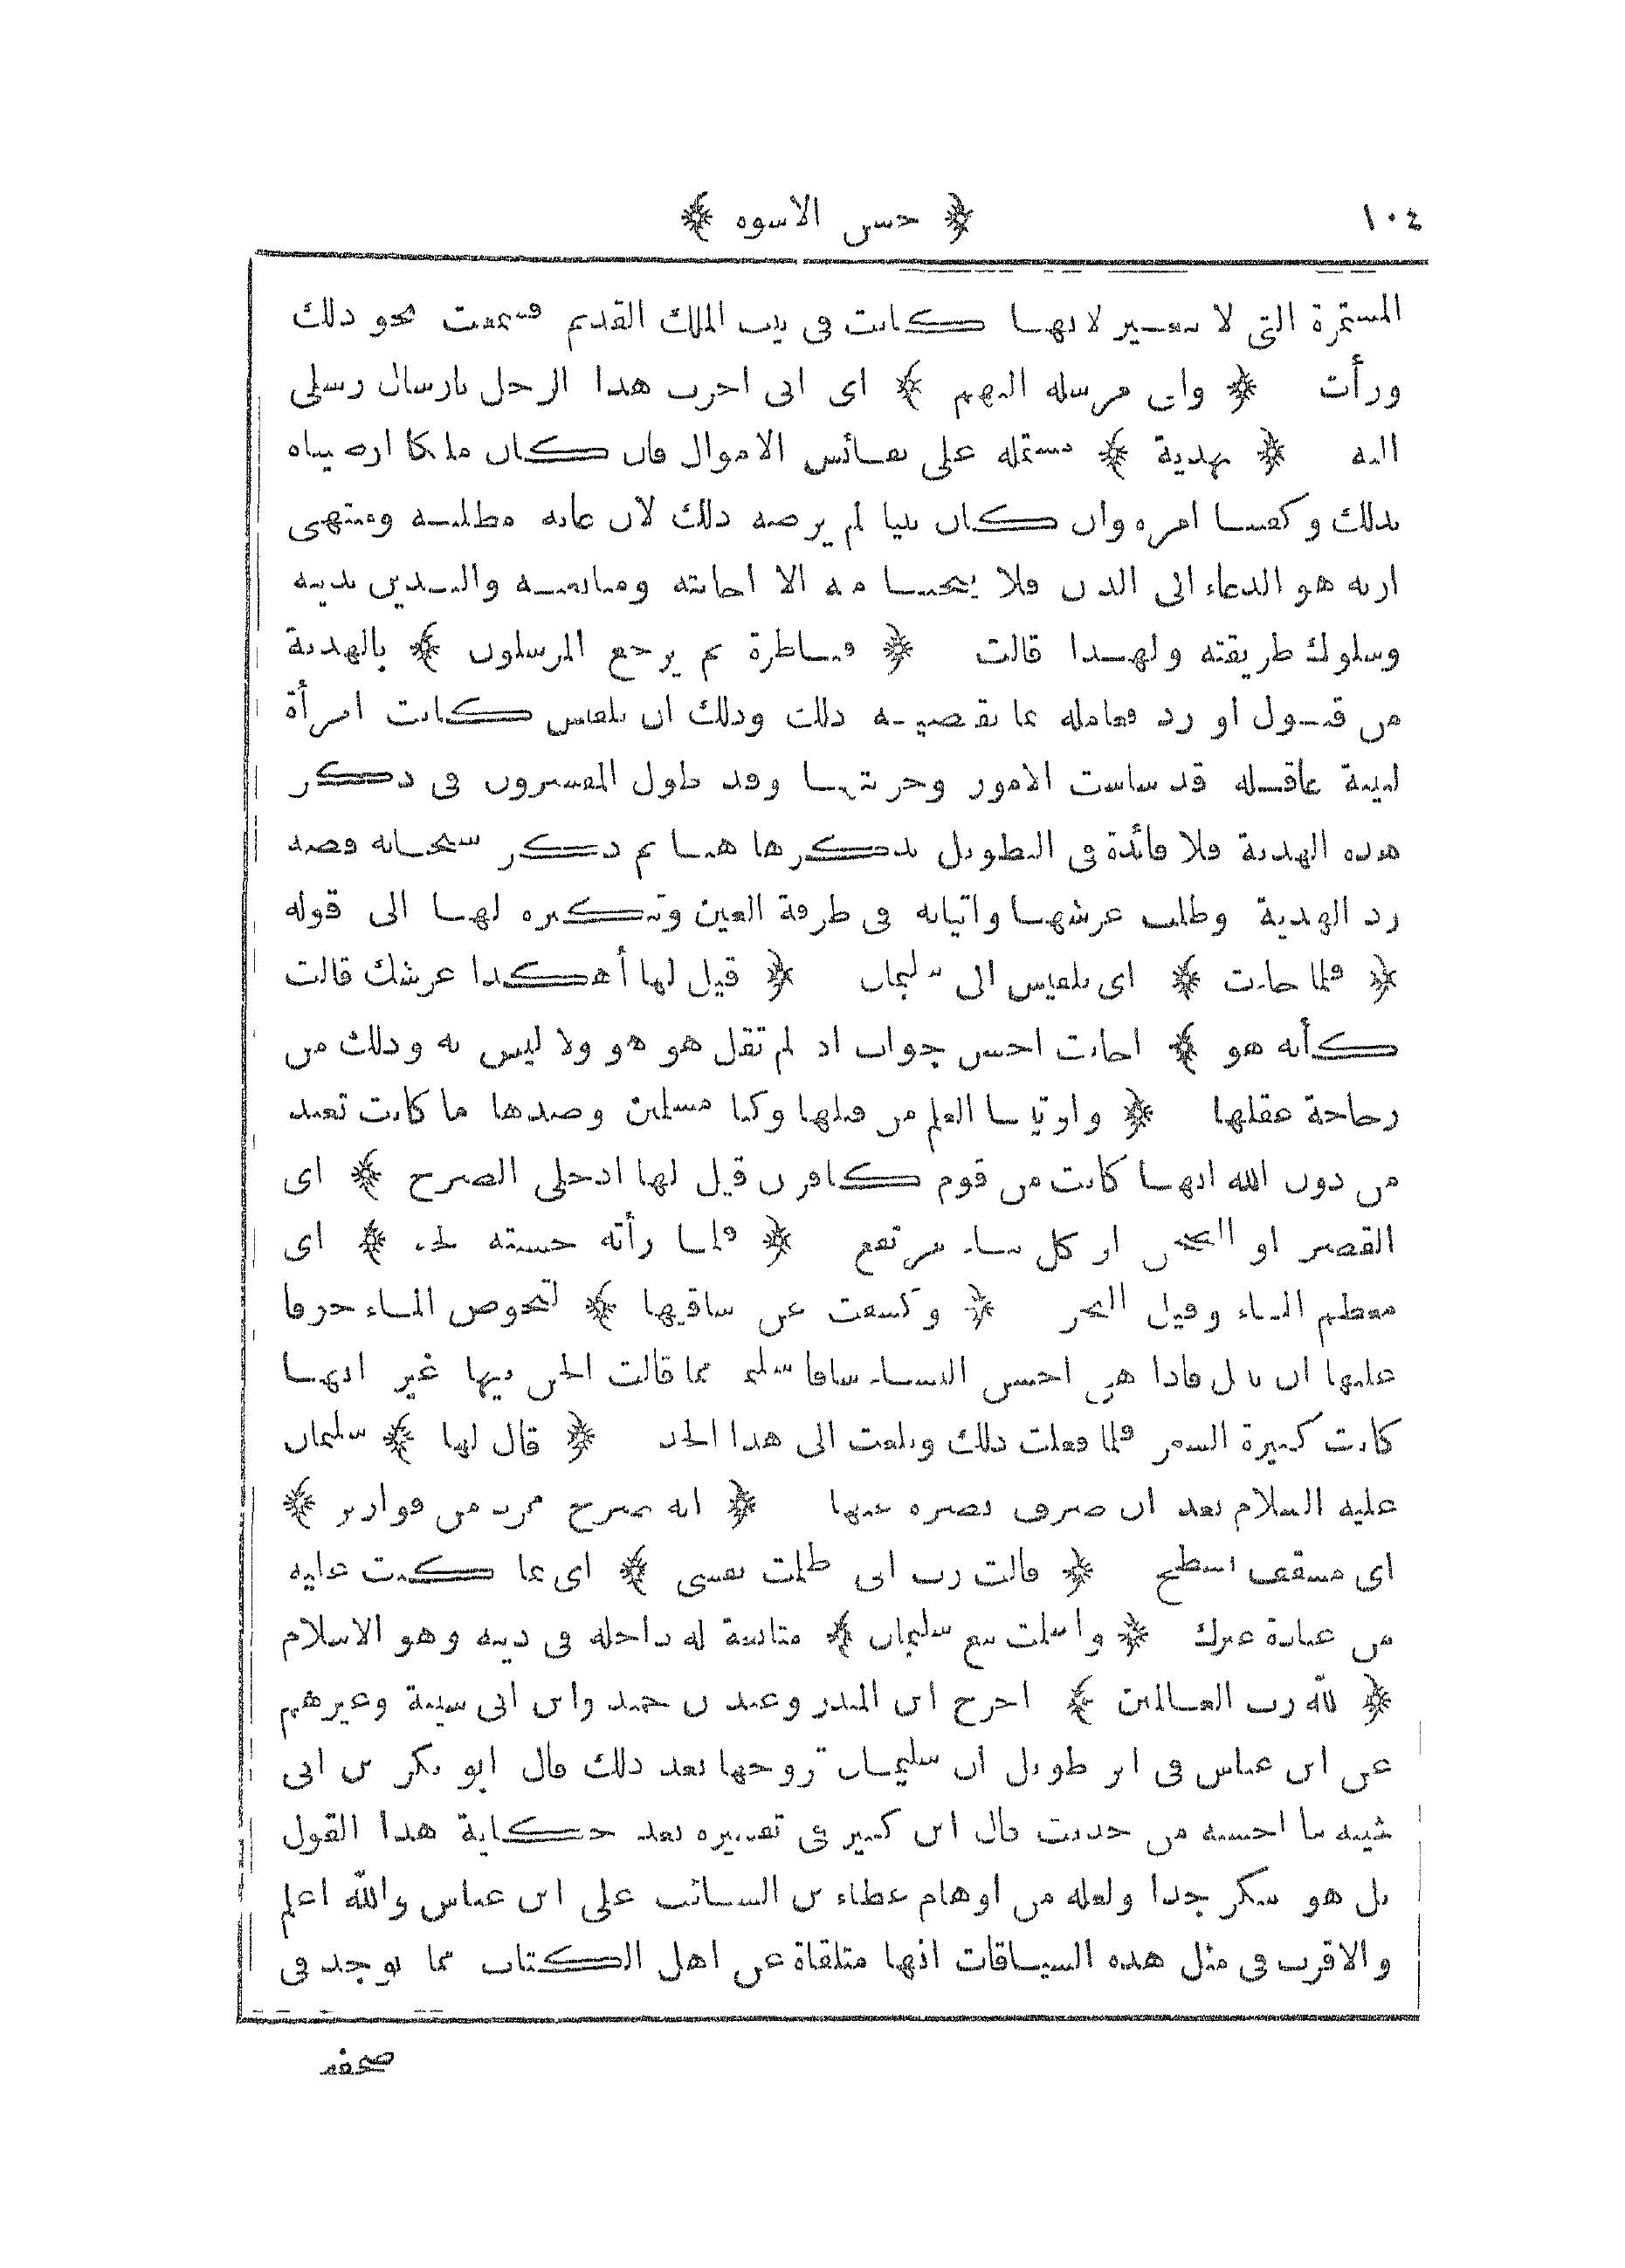 ١٠٤ ﴿ حسن الاسوه ﴾
المستمرة التى لا تتغير لانها كانت فى بيت الملك القديم فسمعت نحو ذلك
ورأت ﴿ وانى مرسلة اليهم ﴾ اى انى اجرب هذا الرجل بارسال رسلى
اليه ﴿ بهدية ﴾ مشتملة على نفائس الاموال فان كان ملكا ارضيناه
بذلك وكفينا امره وان كان نبيا لم يرضه ذلك لان غاية مطلبه ومنتهى
اربه هو الدعاء الى الدين فلا ينجينا منه الا اجابته ومتابعته والتدين بدينه
وسلوك طريقته ولهذا قالت ﴿ فناظرة بم يرجع المرسلون ﴾ بالهدية
من قبول او رد فعاملة بما يقتضيه ذلك وذلك ان بلقيس كانت امرأة
لبيبة عاقلة قد ساست الامور وجربتها وقد طول المفسرون فى ذكر
هذه الهدية فلا فائدة فى التطويل بذكرها هنا ثم ذكر سبحانه قصة
رد الهدية وطلب عرشها واتيانه فى طرفة العين وتنكيره لها الى قوله
﴿ فلما جاءت ﴾ اى بلقيس الى سليمان ﴿ قيل لها أهكذا عرشك قالت
كأنه هو ﴾ اجابت احسن جواب اذ لم تقل هو هو ولا ليس به وذلك من
رجاحة عقلها ﴿ واوتينا العلم من قبلها وكنا مسلمين وصدها ما كانت تعبد
من دون الله انها كانت من قوم كافرين قيل لها ادخلى الصرح ﴾ اى
القصر او الصحن او كل بناء مرتفع ﴿ فلما رأته حسبته لجة ﴾ اى
معظم الماء وقيل البحر ﴿ وكشفت عن ساقيها ﴾ لتخوض الماء خوفا
عليها ان تبتل فاذا هى احسن النساء ساقا سليمة مما قالت الجن فيها غير انها
كانت كثيرة الشعر فلما فعلت ذلك وبلغت الى هذا الحد ﴿ قال لها ﴾ سليمان
عليه السلام بعد ان صرف بصره عنها ﴿ انه صرح ممرد من قوارير ﴾
اى مسقف بسطح ﴿ قالت رب انى ظلمت نفسى ﴾ اى بما كنت عليه
من عبادة غيرك ﴿ واسلمت مع سليمان ﴾ متابعة له داخلة فى دينه وهو الاسلام
﴿ لله رب العالمين ﴾ اخرج ابن المنذر وعبد بن حميد وابن ابى شيبة وغيرهم
عن ابن عباس فى اثر طويل ان سليمان تزوجها بعد ذلك قال ابو بكر بن ابى
شيبه ما احسنه من حديث قال ابن كثير فى تفسيره بعد حكاية هذا القول
بل هو منكر جدا ولعله من اوهام عطاء بن السائب على ابن عباس والله اعلم
والاقرب فى مثل هذه السياقات انها متلقاة عن اهل الكتاب مما يوجد فى
صحفهم